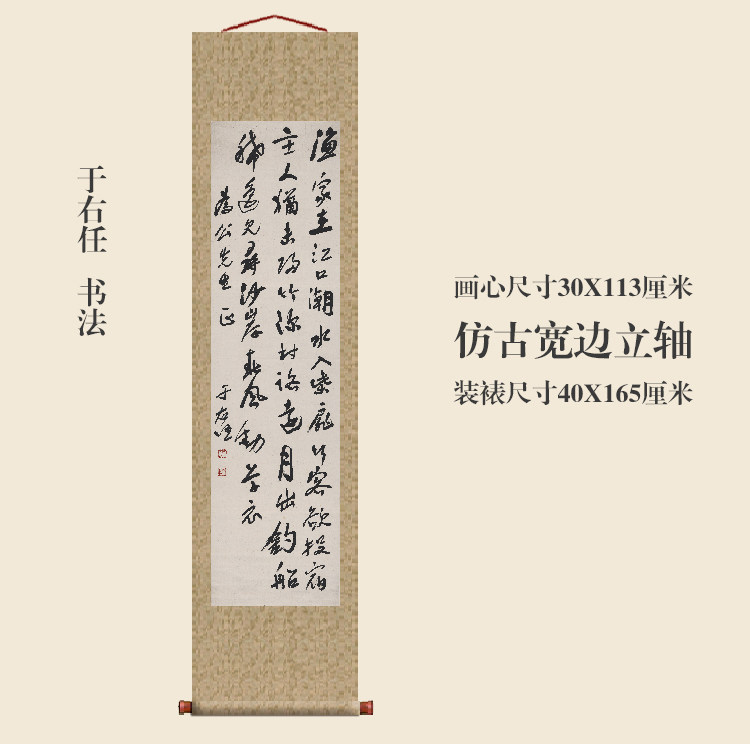 于右任 书法
漁家在江口潮水入柴扉行客欲投宿
主人猶未歸竹深村路遠月出釣船
稀遙見尋沙岸春風動草衣
公先生正
于右任
画心尺寸30X113厘米
仿古宽边立轴
装裱尺寸40X165厘米